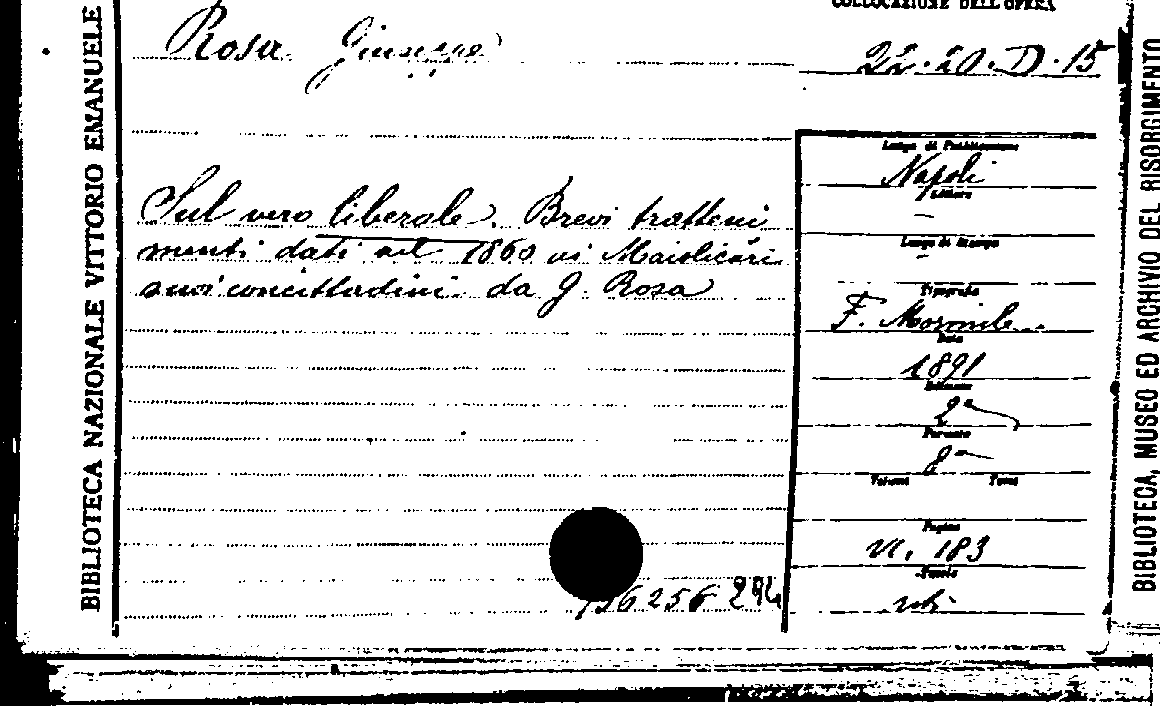 COLLOCAZIONE DELL'OPERA
Rosa Giuseppe
22.20.D.15
BIBLIOTECA NAZIONALE VITTORIO EMANUELE
Sul vero liberale. Brevi tratteni
menti dati nel 1860 ai Maiolicari
suoi concittadini da G. Rosa
Luogo di Pubblicazione
Napoli
Editore
—
Luogo di Stampa
—
Tipografia
F. Mormile
Data
1891
Edizione
2ª
Formato
8º
Volumi Tomi
Pagine
VI, 183
Tavole
BIBLIOTECA, MUSEO ED ARCHIVIO DEL RISORGIMENTO